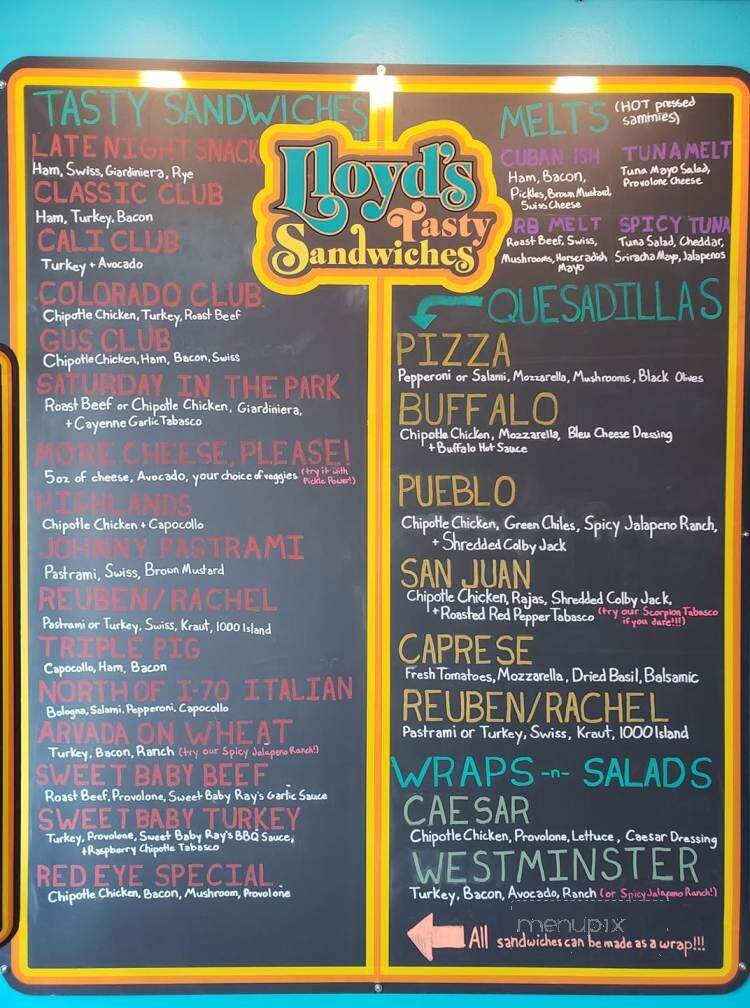 TASTY SANDWICHES
LATE NIGHT SNACK
Ham, Swiss, Giardiniera, Rye
CLASSIC CLUB
Ham, Turkey, Bacon
CALI CLUB
Turkey + Avocado
COLORADO CLUB
Chipotle Chicken, Turkey, Roast Beef
GUS CLUB
Chipotle Chicken, Ham, Bacon, Swiss
SATURDAY IN THE PARK
Roast Beef or Chipotle Chicken, Giardiniera,
+ Cayenne Garlic Tabasco
MORE CHEESE, PLEASE!
5oz of cheese, Avocado, your choice of veggies (try it with
Pickle Power!)
HIGHLANDS
Chipotle Chicken + Capocollo
JOHNNY PASTRAMI
Pastrami, Swiss, Brown Mustard
REUBEN/RACHEL
Pastrami or Turkey, Swiss, Kraut, 1000 Island
TRIPLE PIG
Capocollo, Ham, Bacon
NORTH OF I-70 ITALIAN
Bologna, Salami, Pepperoni, Capocollo
ARVADA ON WHEAT
Turkey, Bacon, Ranch (try our Spicy Jalapeno Ranch!)
SWEET BABY BEEF
Roast Beef, Provolone, Sweet Baby Ray's Garlic Sauce
SWEET BABY TURKEY
Turkey, Provolone, Sweet Baby Ray's BBQ Sauce,
+Raspberry Chipotle Tabasco
RED EYE SPECIAL
Chipotle Chicken, Bacon, Mushroom, Provolone
Lloyd's
Tasty
Sandwiches
MELTS (HOT pressed
sammies)
CUBAN-ISH
Ham, Bacon,
Pickles, Brown Mustard,
Swiss Cheese
TUNA MELT
Tuna Mayo Salad,
Provolone Cheese
RB MELT
Roast Beef, Swiss,
Mushrooms, Horseradish
Mayo
SPICY TUNA
Tuna Salad, Cheddar,
Sriracha Mayo, Jalapenos
QUESADILLAS
PIZZA
Pepperoni or Salami, Mozzarella, Mushrooms, Black Olives
BUFFALO
Chipotle Chicken, Mozzarella, Bleu Cheese Dressing
+ Buffalo Hot Sauce
PUEBLO
Chipotle Chicken, Green Chiles, Spicy Jalapeno Ranch,
+ Shredded Colby Jack
SAN JUAN
Chipotle Chicken, Rajas, Shredded Colby Jack,
+ Roasted Red Pepper Tabasco (try our Scorpion Tabasco
if you dare!!!)
CAPRESE
Fresh Tomatoes, Mozzarella, Dried Basil, Balsamic
REUBEN/RACHEL
Pastrami or Turkey, Swiss, Kraut, 1000 Island
WRAPS -n- SALADS
CAESAR
Chipotle Chicken, Provolone, Lettuce, Caesar Dressing
WESTMINSTER
Turkey, Bacon, Avocado, Ranch (or Spicy Jalapeno Ranch!)
menupix
All sandwiches can be made as a wrap!!!